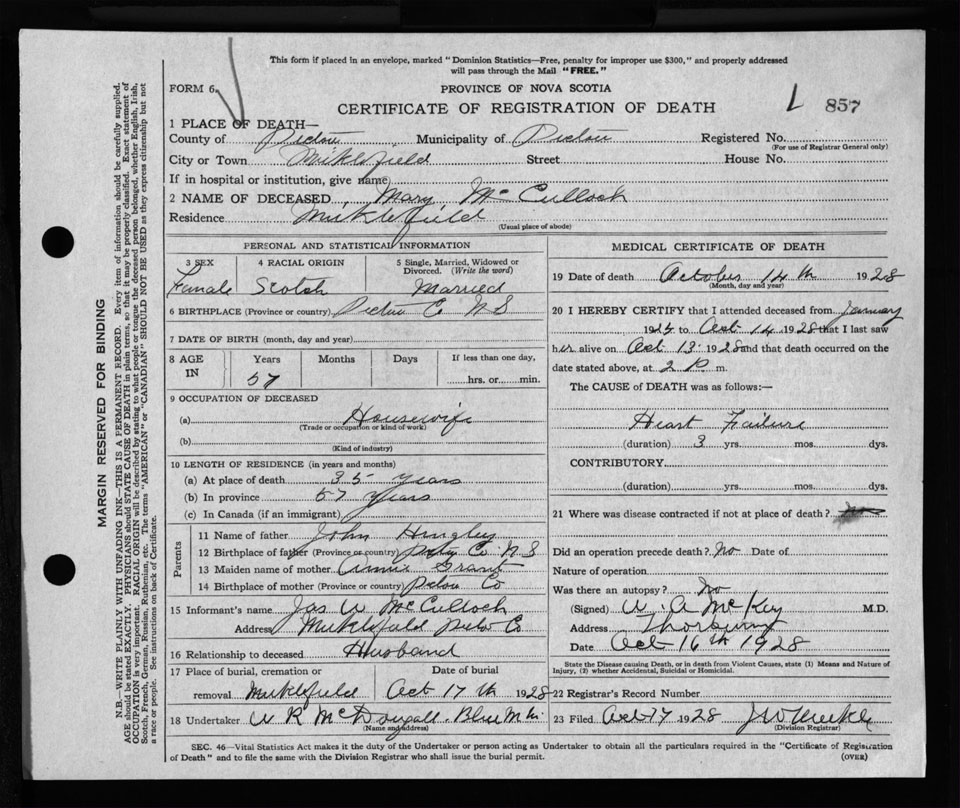 This form if placed in an envelope, marked "Dominion Statistics—Free, penalty for improper use $300," and properly addressed
will pass through the Mail "FREE."
FORM 6.
PROVINCE OF NOVA SCOTIA
CERTIFICATE OF REGISTRATION OF DEATH
L 857
1 PLACE OF DEATH—
County of Pictou Municipality of Pictou Registered No.
(For use of Registrar General only)
City or Town Miklefield Street House No.
If in hospital or institution, give name)
2 NAME OF DECEASED Mary McCulloch
Residence Muklefield
(Usual place of abode)
PERSONAL AND STATISTICAL INFORMATION
3 SEX 4 RACIAL ORIGIN 5 Single, Married, Widowed or
Divorced. (Write the word)
Female Scotch Married
6 BIRTHPLACE (Province or country) Pictou Co NS
7 DATE OF BIRTH (month, day and year)
8 AGE IN Years Months Days If less than one day,
57 hrs. or min.
9 OCCUPATION OF DECEASED
(a) Housewife
(Trade or occupation or kind of work)
(b)
(Kind of industry)
10 LENGTH OF RESIDENCE (in years and months)
(a) At place of death 35 years
(b) In province 57 years
(c) In Canada (if an immigrant)
Parents
11 Name of father John Hingley
12 Birthplace of father (Province or country) Co NS
13 Maiden name of mother Annie Grant
14 Birthplace of mother (Province or country) Pictou Co
15 Informant's name Jas W McCulloch
Address Muklefield Pictou Co
16 Relationship to deceased Husband
17 Place of burial, cremation or Date of burial
removal Muklefield Oct 17th 1928
18 Undertaker W R McDougall. Blue Mtn.
(Name and address)
MEDICAL CERTIFICATE OF DEATH
19 Date of death October 14th 1928
(Month, day and year)
20 I HEREBY CERTIFY that I attended deceased from January
1925 to Oct 14 1928 that I last saw
her alive on Oct 13 1928 and that death occurred on the
date stated above, at 2 P m.
The CAUSE of DEATH was as follows:—
Heart Failure
(duration) 3 yrs. mos. dys.
CONTRIBUTORY
(duration) yrs. mos. dys.
21 Where was disease contracted if not at place of death?
Did an operation precede death? No Date of
Nature of operation
Was there an autopsy? No
(Signed) W. A McKay M.D.
Address Thorburn
Date Oct 16th 1928
State the Disease causing Death, or in death from Violent Causes, state (1) Means and Nature of
Injury, (2) whether Accidental, Suicidal or Homicidal.
22 Registrar's Record Number
23 Filed Oct 17 1928 J W Meikle
(Division Registrar)
SEC. 46—Vital Statistics Act makes it the duty of the Undertaker or person acting as Undertaker to obtain all the particulars required in the "Certificate of Registration
of Death" and to file the same with the Division Registrar who shall issue the burial permit.
(OVER)
MARGIN RESERVED FOR BINDING
N.B.—WRITE PLAINLY WITH UNFADING INK—THIS IS A PERMANENT RECORD. Every item of information should be carefully supplied.
AGE should be stated EXACTLY. PHYSICIANS should STATE CAUSE OF DEATH in plain terms, so that it may be properly classified. Exact statement of
OCCUPATION is very important. RACIAL ORIGIN will be described by stating to what people or tongue the deceased person belonged, whether English, Irish,
Scotch, French, German, Russian, Ruthenian, etc. The terms "AMERICAN" or "CANADIAN" SHOULD NOT BE USED as they express citizenship but not
a race or people. See instructions on back of Certificate.